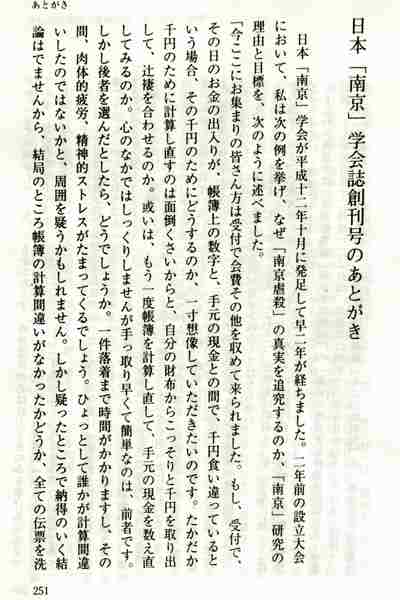 あとがき
日本「南京」学会誌創刊号のあとがき
日本「南京」学会が平成十二年十月に発足して早二年が経ちました。二年前の設立大会
において、私は次の例を挙げ、なぜ「南京虐殺」の真実を追究するのか、「南京」研究の
理由と目標を、次のように述べました。
「今ここにお集まりの皆さん方は受付で会費その他を収めて来られました。もし、受付で、
その日のお金の出入りが、帳簿上の数字と、手元の現金との間で、千円食い違っていると
いう場合、その千円のためにどうするのか、一寸想像していただきたいのです。たかだか
千円のために計算し直すのは面倒くさいからと、自分の財布からこっそりと千円を取り出
して、辻褄を合わせるのか。或いは、もう一度帳簿を計算し直して、手元の現金を数え直
してみるのか。心のなかではしっくりしませんが手っ取り早くて簡単なのは、前者です。
しかし後者を選んだとしたら、どうでしょうか。一件落着まで時間がかかりますし、その
間、肉体的疲労、精神的ストレスがたまってくるでしょう。ひょっとして誰かが計算間違
いしたのではないかと、周囲を疑うかもしれません。しかし疑ったところで納得のいく結
論はでませんから、結局のところ帳簿の計算間違いがなかったかどうか、全ての伝票を洗
251